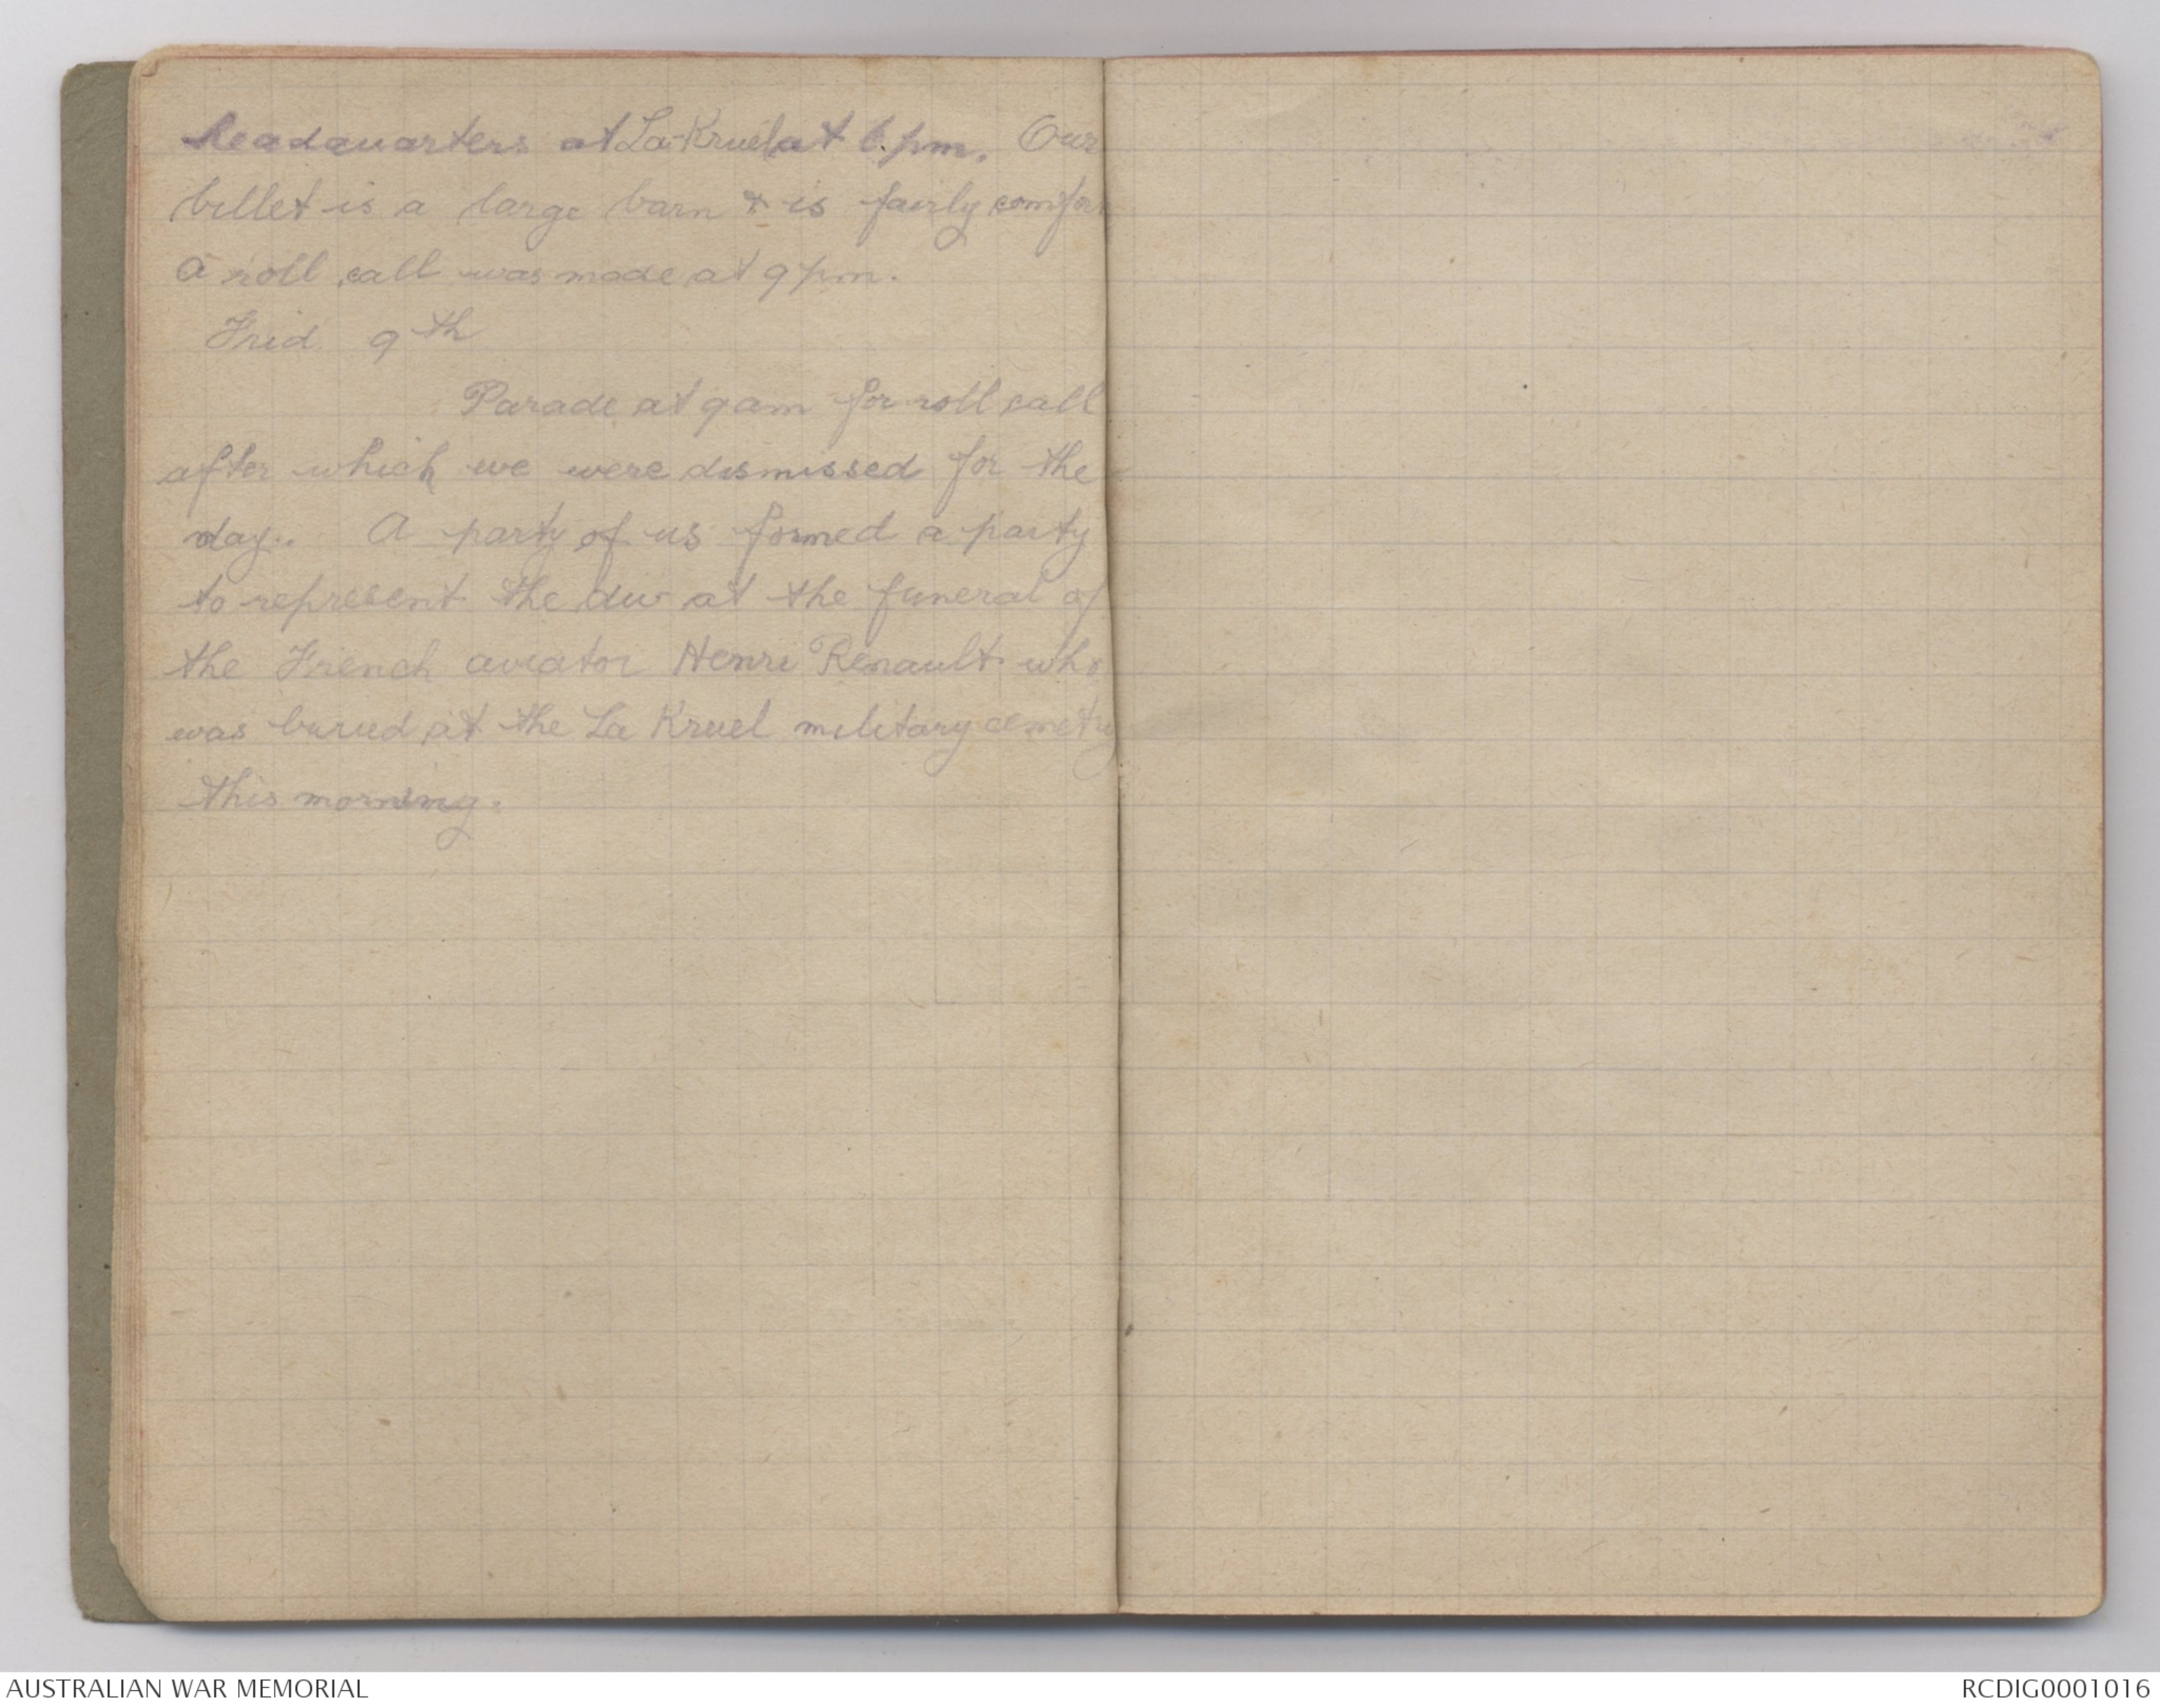 headquarters at La-Kruel at 6.pm. Our
billet is a large barn & is fairly comfor
A roll call was made at 9 pm.
Frid 9th
Parade at 9 am for roll call
after which we were dismissed for the
day. A party of us formed a party
to represent the div at the funeral of
the French aviator Henri Renault who
was buried at the La Kruel military cemetry
this morning.
AUSTRALIAN WAR MEMORIAL
RCDIG0001016